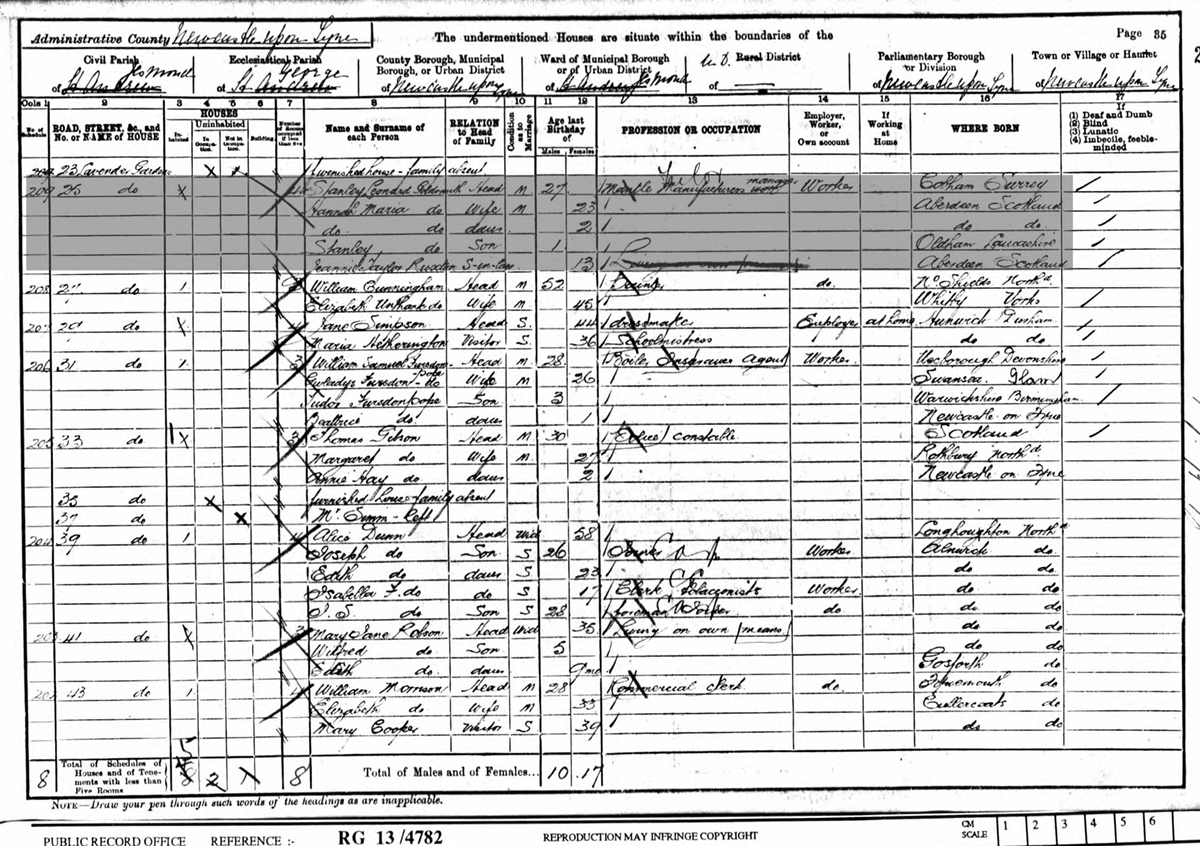 Administrative County Newcastle upon Tyne
The undermentioned Houses are situate within the boundaries of the
Page 35
Civil Parish
of St Andrew Jesmond
Ecclesiastical Parish
of St Andrew George
County Borough, Municipal Borough, or Urban District
of Newcastle upon Tyne
Ward of Municipal Borough or of Urban District
of St Andrew Jesmond
Rural District
of
Parliamentary Borough or Division
of Newcastle upon Tyne
Town or Village or Hamlet
of Newcastle upon Tyne
Cols 1 2 3 4 5 6 7 8 9 10 11 12 13 14 15 16 17
No. of Schedule
ROAD, STREET, &c., and No. or NAME of HOUSE
HOUSES
Inhabited
Uninhabited
In Occupation.
Not in Occupation.
Building.
Number of Rooms occupied if less than five
Name and Surname of each Person
RELATION to Head of Family
Condition as to Marriage
Age last Birthday of
Males Females
PROFESSION OR OCCUPATION
Employer, Worker, or Own account
If Working at Home
WHERE BORN
If
(1) Deaf and Dumb
(2) Blind
(3) Lunatic
(4) Imbecile, feeble-minded
23 Lavender Gardens furnished house - family absent
209 25 do Stanley Head M 27 Mantle Manufacturers manager Worker Cobham Surrey
Hannah Maria do Wife M 23 Aberdeen Scotland
do. do daur 2 do do
Stanley do Son 1 Oldham Lancashire
Jeannie Taylor S-in-law 13 Aberdeen Scotland
208 27 do 1 William Cunningham Head M 52 do. No Shields Northd
Elizabeth do Wife M 45 Whitby Yorks
207 29 do Jane Simpson Head S. 44 dressmaker Employer at home Durham
Maria Hetherington Visitor S 36 Schoolmistress do do
206 31 do 1 William Samuel Head M 28 Agent Worker Devonshire
Gwladys do Wife M 26 Swansea Glam
Tudor Son 3 Warwickshire Birmingham
Beatrice do. daur 1 Newcastle on Tyne
205 33 do Thomas Gibson Head M 30 Police constable Scotland
Margaret do Wife M 27 Rothbury Northd
Annie Hay do daur 2 Newcastle on Tyne
35 do furnished house family absent
37 do Mr Simm - left
204 39 do 1 Alice Dunn Head Wid 58 Longhoughton North
Joseph do Son S 26 Worker Alnwick do.
Edith do daur S 23 do do
Isabella F. do do S 17 Clerk Worker do do
J. S do Son S 28 foreman do do do
203 41 do Mary Jane Robson Head Wid 35 Living on own means do do
Wilfred do Son 5 do do
Edith do. daur 9mo Gosforth do
202 43 do 1 William Morrison Head M 28 Commercial clerk do. Tynemouth do
Elizabeth do Wife M 33 Cullercoats do
Mary Cooper Visitor S 39 do do
8 Total of Schedules of Houses and of Tenements with less than Five Rooms 2 1 8 Total of Males and of Females... 10 17
NOTE—Draw your pen through such words of the headings as are inapplicable.
PUBLIC RECORD OFFICE REFERENCE :- RG 13/4782 REPRODUCTION MAY INFRINGE COPYRIGHT CM SCALE 1 2 3 4 5 6